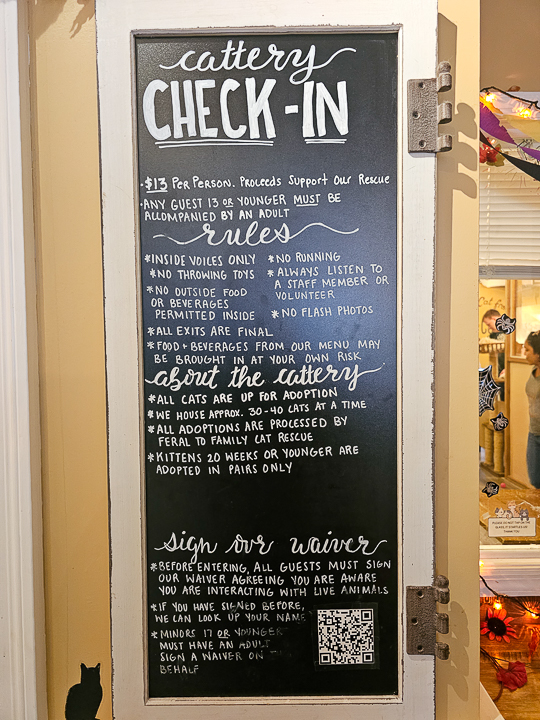 cattery
CHECK-IN
·$13 PER PERSON. PROCEEDS SUPPORT OUR RESCUE
·ANY GUEST 13 OR YOUNGER MUST BE
ACCOMPANIED BY AN ADULT
rules
*INSIDE VOICES ONLY
*NO THROWING TOYS
*NO OUTSIDE FOOD
OR BEVERAGES
PERMITTED INSIDE
*NO RUNNING
*ALWAYS LISTEN TO
A STAFF MEMBER OR
VOLUNTEER
*NO FLASH PHOTOS
*ALL EXITS ARE FINAL
*FOOD + BEVERAGES FROM OUR MENU MAY
BE BROUGHT IN AT YOUR OWN RISK
about the cattery
*ALL CATS ARE UP FOR ADOPTION
*WE HOUSE APPROX. 30-40 CATS AT A TIME
*ALL ADOPTIONS ARE PROCESSED BY
FERAL TO FAMILY CAT RESCUE
*KITTENS 20 WEEKS OR YOUNGER ARE
ADOPTED IN PAIRS ONLY
sign our waiver
*BEFORE ENTERING, ALL GUESTS MUST SIGN
OUR WAIVER AGREEING YOU ARE AWARE
YOU ARE INTERACTING WITH LIVE ANIMALS
*IF YOU HAVE SIGNED BEFORE,
WE CAN LOOK UP YOUR NAME
*MINORS 17 OR YOUNGER
MUST HAVE AN ADULT
SIGN A WAIVER ON
BEHALF